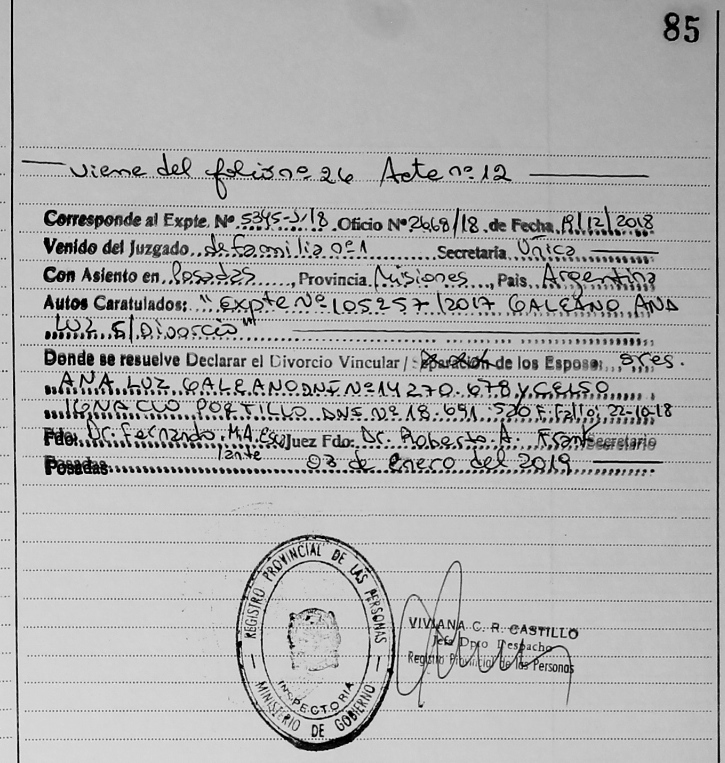 85
Viene del folio nº 26 Acte nº 12
Corresponde al Expte. Nº 5345-J/18 Oficio Nº 2668/18 de Fecha 19/12/2018
Venido del Juzgado de familia nº 1 Secretaria Única
Con Asiento en Posadas, Provincia Misiones, Pais Argentina
Autos Caratulados: "Expte Nº 105257/2017 GALEANO ANA
LUZ S/Divorcio"
Donde se resuelve Declarar el Divorcio Vincular / Separación de los Esposos sres.
ANA LUZ GALEANO DNI Nº 14.270.678 Y CELSO
IGNACIO PORTILLO DNI Nº 18.691.520 F. Fallo: 22-10-18
Fdo: Dr. Fernando M.A. Juez Fdo: Dr. Roberto A. Frank Secretario
Posadas 03 de enero del 2019
REGISTRO PROVINCIAL DE LAS PERSONAS
INSPECTORIA
MINISTERIO DE GOBIERNO
VIVIANA C. R. CASTILLO
Jefa Dpto Despacho
Registro Provincial de las Personas